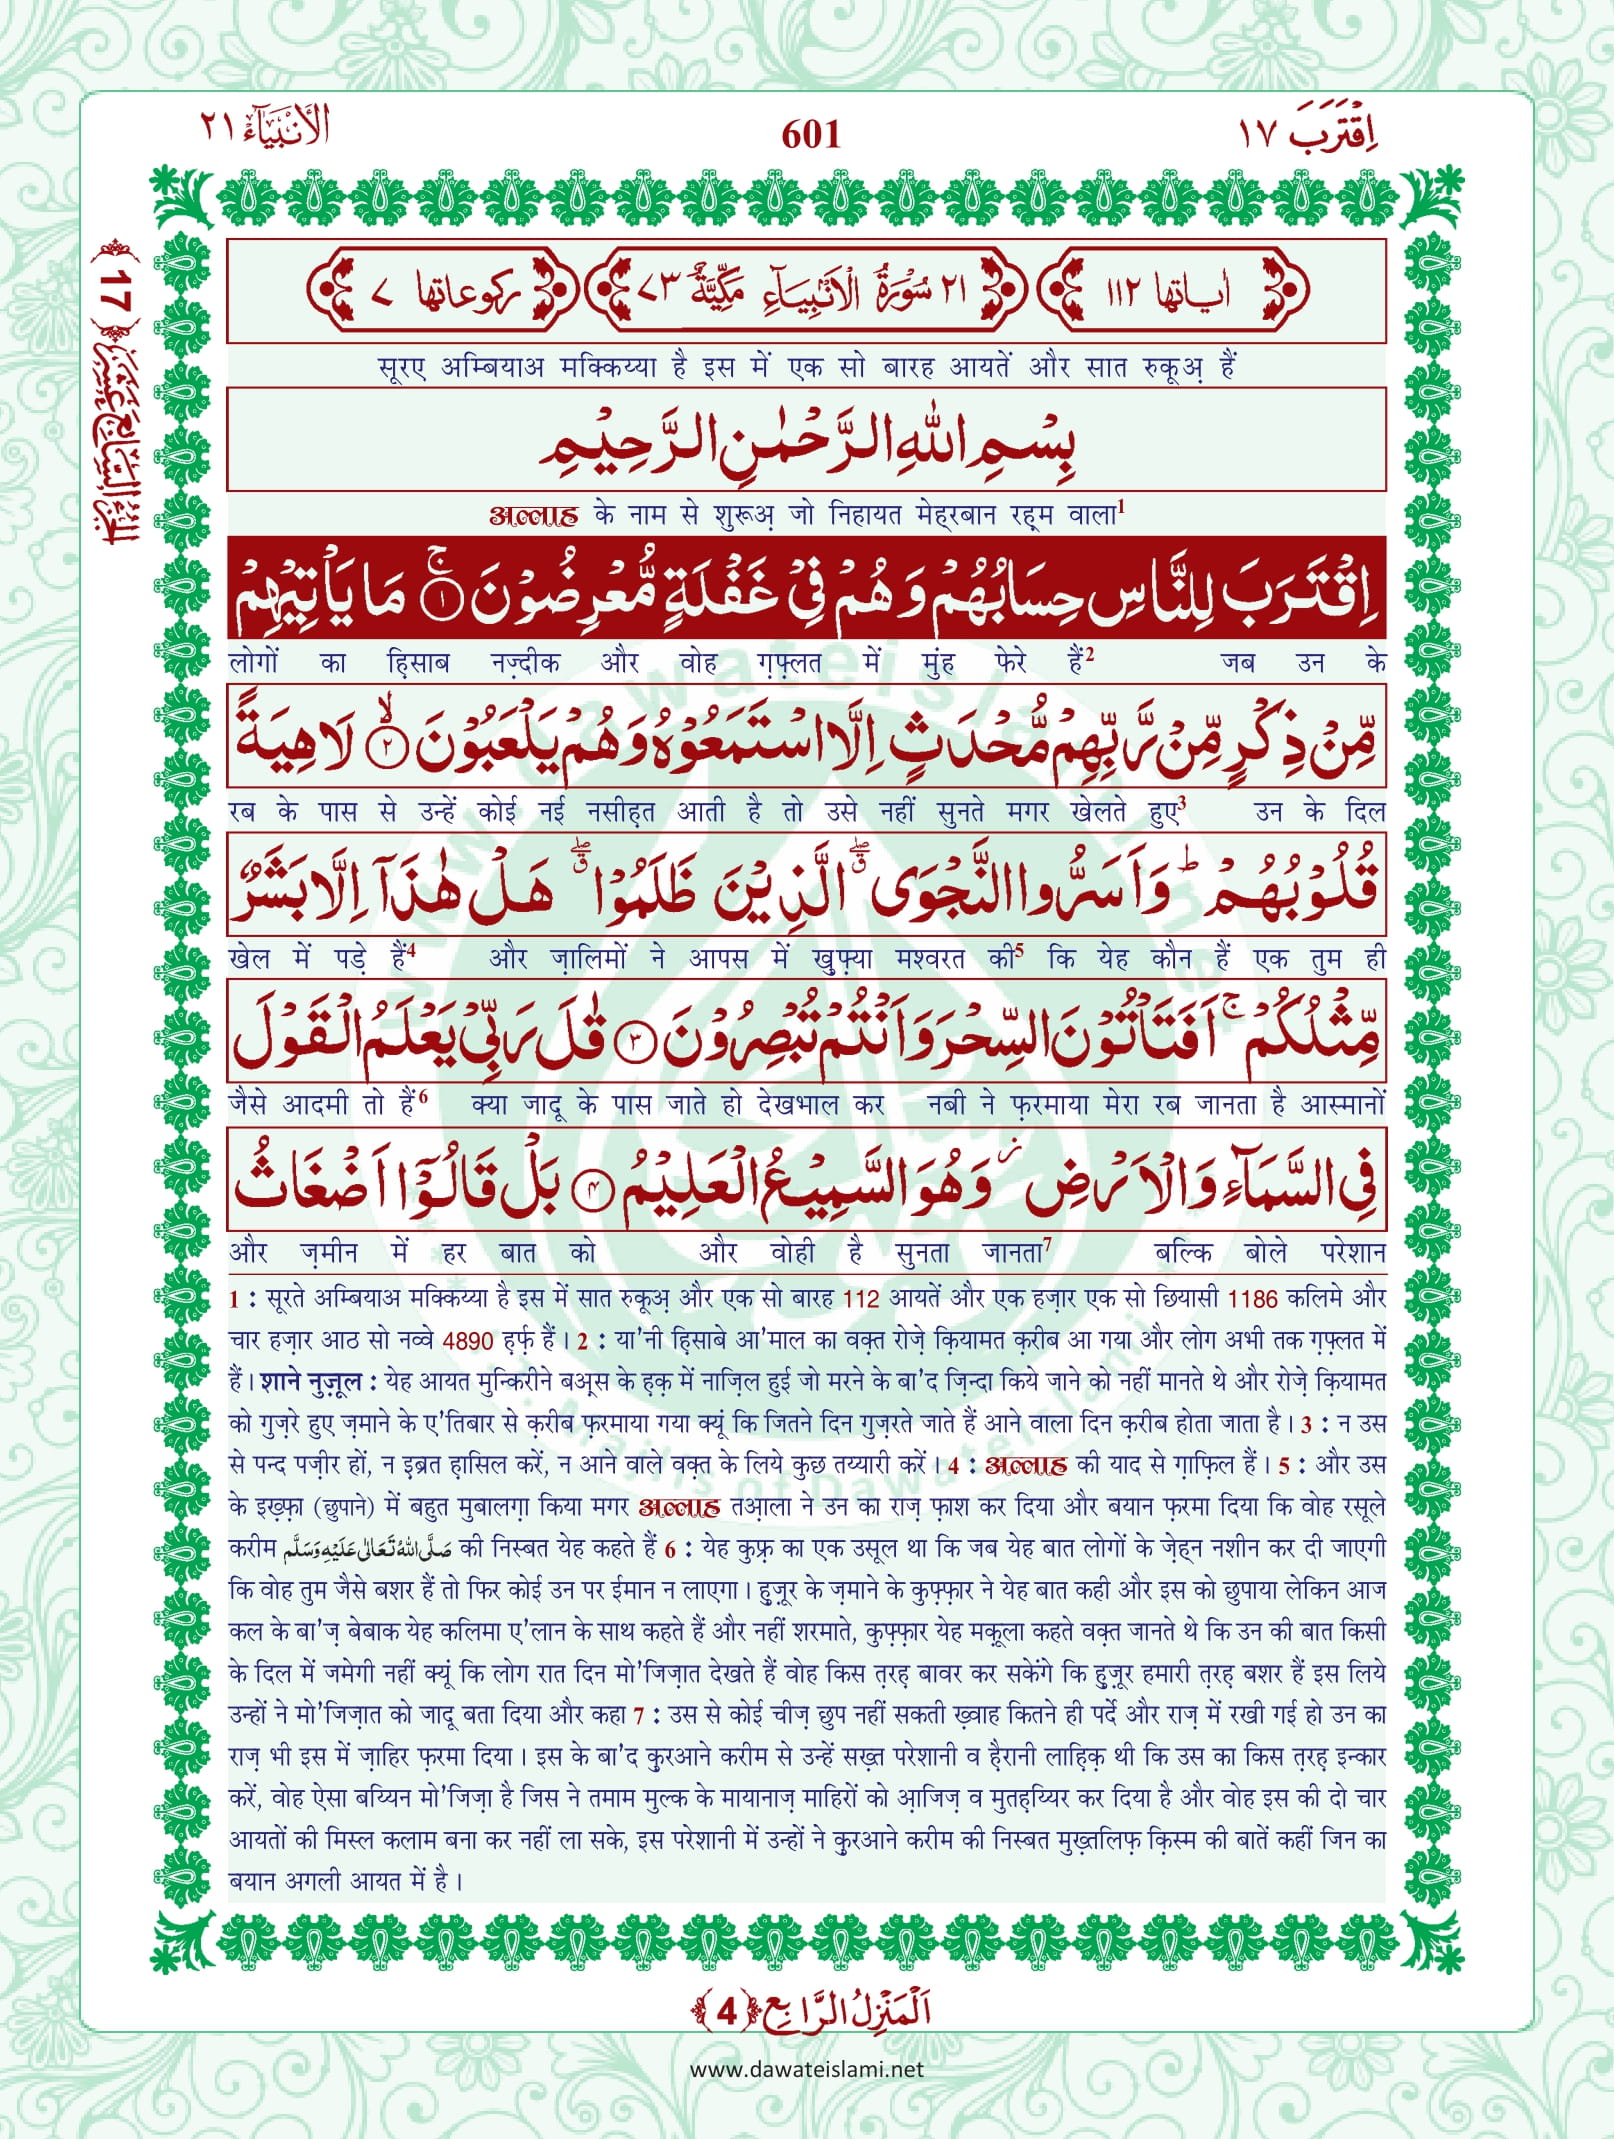 اِقْتَرَبَ ١٧ 601 الْاَنْۢبِيَآء ٢١
اٰیاتها ١١٢ ٢١ سُوْرَةُ الْاَنْۢبِيَآءِ مَكِّيَّةٌ ٧٣ رکوعاتها ٧
सूरए अम्बियाअ मक्किय्या है इस में एक सो बारह आयतें और सात रुकूअ़ हैं
بِسْمِ اللّٰهِ الرَّحْمٰنِ الرَّحِيْمِ
अल्लाह के नाम से शुरूअ़ जो निहायत मेह्रबान रह़्म वाला1
اِقْتَرَبَ لِلنَّاسِ حِسَابُهُمْ وَ هُمْ فِیْ غَفْلَةٍ مُّعْرِضُوْنَ ۚ﴿۱﴾ مَا یَاْتِیْهِمْ
लोगों का ह़िसाब नज़्दीक और वोह ग़फ़्लत में मुंह फेरे हैं2 जब उन के
مِّنْ ذِكْرٍ مِّنْ رَّبِّهِمْ مُّحْدَثٍ اِلَّا اسْتَمَعُوْهُ وَ هُمْ یَلْعَبُوْنَ ۙ﴿۲﴾ لَاهِیَةً
रब के पास से उन्हें कोई नई नसीह़त आती है तो उसे नहीं सुनते मगर खेलते हुए3 उन के दिल
قُلُوْبُهُمْ ؕ وَ اَسَرُّوا النَّجْوَى ۖۗ الَّذِیْنَ ظَلَمُوْا ۖۗ هَلْ هٰذَاۤ اِلَّا بَشَرٌ
खेल में पड़े हैं4 और ज़ालिमों ने आपस में ख़ुफ़्या मश्वरत की5 कि येह कौन हैं एक तुम ही
مِّثْلُكُمْ ۚ اَفَتَاْتُوْنَ السِّحْرَ وَ اَنْتُمْ تُبْصِرُوْنَ ﴿۳﴾ قٰلَ رَبِّیْ یَعْلَمُ الْقَوْلَ
जैसे आदमी तो हैं6 क्या जादू के पास जाते हो देखभाल कर नबी ने फ़रमाया मेरा रब जानता है आस्मानों
فِی السَّمَآءِ وَ الْاَرْضِ ؗ وَ هُوَ السَّمِیْعُ الْعَلِیْمُ ﴿۴﴾ بَلْ قَالُوْۤا اَضْغَاثُ
और ज़मीन में हर बात को और वोही है सुनता जानता7 बल्कि बोले परेशान
1 : सूरते अम्बियाअ मक्किय्या है इस में सात रुकूअ़ और एक सो बारह 112 आयतें और एक हज़ार एक सो छियासी 1186 कलिमे और
चार हज़ार आठ सो नव्वे 4890 ह़र्फ़ हैं। 2 : या'नी ह़िसाबे आ'माल का वक़्त रोज़े क़ियामत क़रीब आ गया और लोग अभी तक ग़फ़्लत में
हैं। शाने नुज़ूल : येह आयत मुन्किरीने बअ़्स के ह़क़ में नाज़िल हुई जो मरने के बा'द ज़िन्दा किये जाने को नहीं मानते थे और रोज़े क़ियामत
को गुज़रे हुए ज़माने के ए'तिबार से क़रीब फ़रमाया गया क्यूं कि जितने दिन गुज़रते जाते हैं आने वाला दिन क़रीब होता जाता है। 3 : न उस
से पन्द पज़ीर हों, न इब्रत ह़ासिल करें, न आने वाले वक़्त के लिये कुछ तय्यारी करें। 4 : अल्लाह की याद से ग़ाफ़िल हैं। 5 : और उस
के इख़्फ़ा (छुपाने) में बहुत मुबालग़ा किया मगर अल्लाह तआ़ला ने उन का राज़ फ़ाश कर दिया और बयान फ़रमा दिया कि वोह रसूले
करीम صَلَّى اللّٰهُ تَعَالٰى عَلَيْهِ وَسَلَّم की निस्बत येह कहते हैं 6 : येह कुफ़्र का एक उसूल था कि जब येह बात लोगों के ज़ेह्न नशीन कर दी जाएगी
कि वोह तुम जैसे बशर हैं तो फिर कोई उन पर ईमान न लाएगा। हुज़ूर के ज़माने के कुफ़्फ़ार ने येह बात कही और इस को छुपाया लेकिन आज
कल के बा'ज़ बेबाक येह कलिमा ए'लान के साथ कहते हैं और नहीं शरमाते, कुफ़्फ़ार येह मक़ूला कहते वक़्त जानते थे कि उन की बात किसी
के दिल में जमेगी नहीं क्यूं कि लोग रात दिन मो'जिज़ात देखते हैं वोह किस त़रह़ बावर कर सकेंगे कि हुज़ूर हमारी त़रह़ बशर हैं इस लिये
उन्हों ने मो'जिज़ात को जादू बता दिया और कहा 7 : उस से कोई चीज़ छुप नहीं सकती ख़्वाह कितने ही पर्दे और राज़ में रखी गई हो उन का
राज़ भी इस में ज़ाहिर फ़रमा दिया। इस के बा'द क़ुरआने करीम से उन्हें सख़्त परेशानी व ह़ैरानी लाह़िक़ थी कि उस का किस त़रह़ इन्कार
करें, वोह ऐसा बय्यिन मो'जिज़ा है जिस ने तमाम मुल्क के मायानाज़ माहिरों को आ़जिज़ व मुतह़य्यिर कर दिया है और वोह इस की दो चार
आयतों की मिस्ल कलाम बना कर नहीं ला सके, इस परेशानी में उन्हों ने क़ुरआने करीम की निस्बत मुख़्तलिफ़ क़िस्म की बातें कहीं जिन का
बयान अगली आयत में है।
اَلْمَنْزِلُ الرَّابِع ﴿4﴾
www.dawateislami.net
اَلْجُزْءُ السَّابِعَ عَشَرَ ﴿17﴾